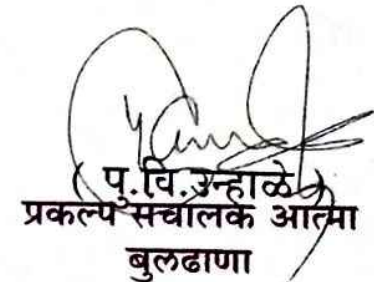 ( पु.वि.उन्हाळे )
प्रकल्प संचालक आत्मा
बुलढाणा